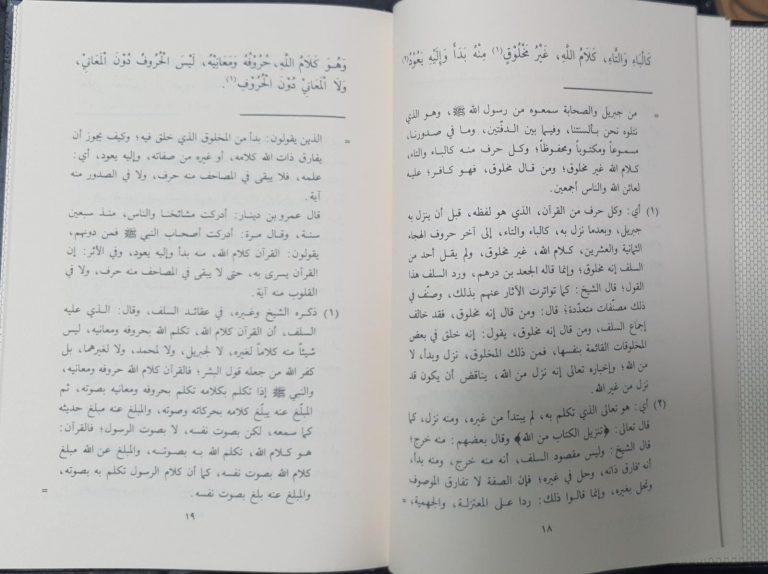 كَالْبَاءِ وَالتَّاءِ، كَلَامُ اللهِ، غَيْرُ مَخْلُوْقٍ(١) مِنْهُ بَدَأَ وَإِلَيْهِ يَعُوْدُ(٢)
= من جبريل والصحابة سمعوه من رسول الله ﷺ، وهو الذي
نتلوه نحن بألسنتنا، وفيما بين الدفّتين، وما في صدورنا،
مسموعاً ومكتوباً ومحفوظاً؛ وكل حرف منه كالباء والتاء،
كلام الله غير مخلوق؛ ومن قال مخلوق، فهو كافر؛ عليه
لعائن الله والناس أجمعين.
(١) أي: وكل حرف من القرآن، الذي هو لفظه، قبل أن ينزل به
جبريل، وبعدما نزل به، كالباء والتاء، إلى آخر حروف الهجاء
الثمانية والعشرين، كلام الله، غير مخلوق، ولم يقل أحد من
السلف إنه مخلوق؛ وإنما قاله الجعد بن درهم، ورد السلف هذا
القول؛ قال الشيخ: كما تواترت الآثار عنهم بذلك، وصنّف في
ذلك مصنّفات متعدّدة؛ قال: ومن قال إنه مخلوق، فقد خالف
إجماع السلف، ومن قال إنه مخلوق، يقول: إنه خلق في بعض
المخلوقات القائمة بنفسها، فمن ذلك المخلوق، نزل وبدأ، لا
من الله؛ وإخباره تعالى إنه نزل من الله، يناقض أن يكون قد
نزل من غير الله.
(٢) أي: هو تعالى الذي تكلم به، لم يبتدأ من غيره، ومنه نزل، كما
قال تعالى: ﴿تنزيل الكتاب من الله﴾ وقال بعضهم: منه خرج؛
قال الشيخ: وليس مقصود السلف، أنه منه خرج، ومنه بدأ،
أنه فارق ذاته، وحل في غيره؛ فإن الصفة لا تفارق الموصوف
وتحل بغيره، وإنما قالوا ذلك: ردا على المعتزلة، والجهمية، =
١٨
وَهُوَ كَلَامُ اللهِ، حُرُوْفُهُ وَمَعَانِيْهُ، لَيْسَ الْحُرُوفُ دُوْنَ الْمَعَانِيْ،
وَلَا الْمَعَانِيْ دُوْنَ الْحُرُوْفِ(١).
= الذين يقولون: بدأ من المخلوق الذي خلق فيه؛ وكيف يجوز أن
يفارق ذات الله كلامه، أو غيره من صفاته، وإليه يعود، أي:
علمه، فلا يبقى في المصاحف منه حرف، ولا في الصدور منه
آية.
قال عمرو بن دينار: أدركت مشائخنا والناس، منذ سبعين
سنة، وقال مرة: أدركت أصحاب النبي ﷺ فمن دونهم،
يقولون: القرآن كلام الله، منه بدأ وإليه يعود، وفي الأثر: إن
القرآن يسرى به، حتى لا يبقى في المصاحف منه حرف، ولا في
القلوب منه آية.
(١) ذكره الشيخ وغيره، في عقائد السلف، وقال: الذي عليه
السلف، أن القرآن كلام الله، تكلم الله بحروفه ومعانيه، ليس
شيئاً منه كلاماً لغيره، لا لجبريل، ولا لمحمد، ولا لغيرهما، بل
كفر الله من جعله قول البشر؛ فالقرآن كلام الله حروفه ومعانيه،
والنبي ﷺ إذا تكلم بكلامه تكلم بحروفه ومعانيه بصوته، ثم
المبلّغ عنه يبلّغ كلامه بحركاته وصوته، والمبلغ عنه مبلغ حديثه
كما سمعه، لكن بصوت نفسه، لا بصوت الرسول؛ فالقرآن:
هو كلام الله، تكلم الله به بصوته، والمبلغ عن الله مبلغ
كلام الله بصوت نفسه، كما أن كلام الرسول تكلم به بصوته،
والمبلغ عنه بلغ بصوت نفسه. =
١٩